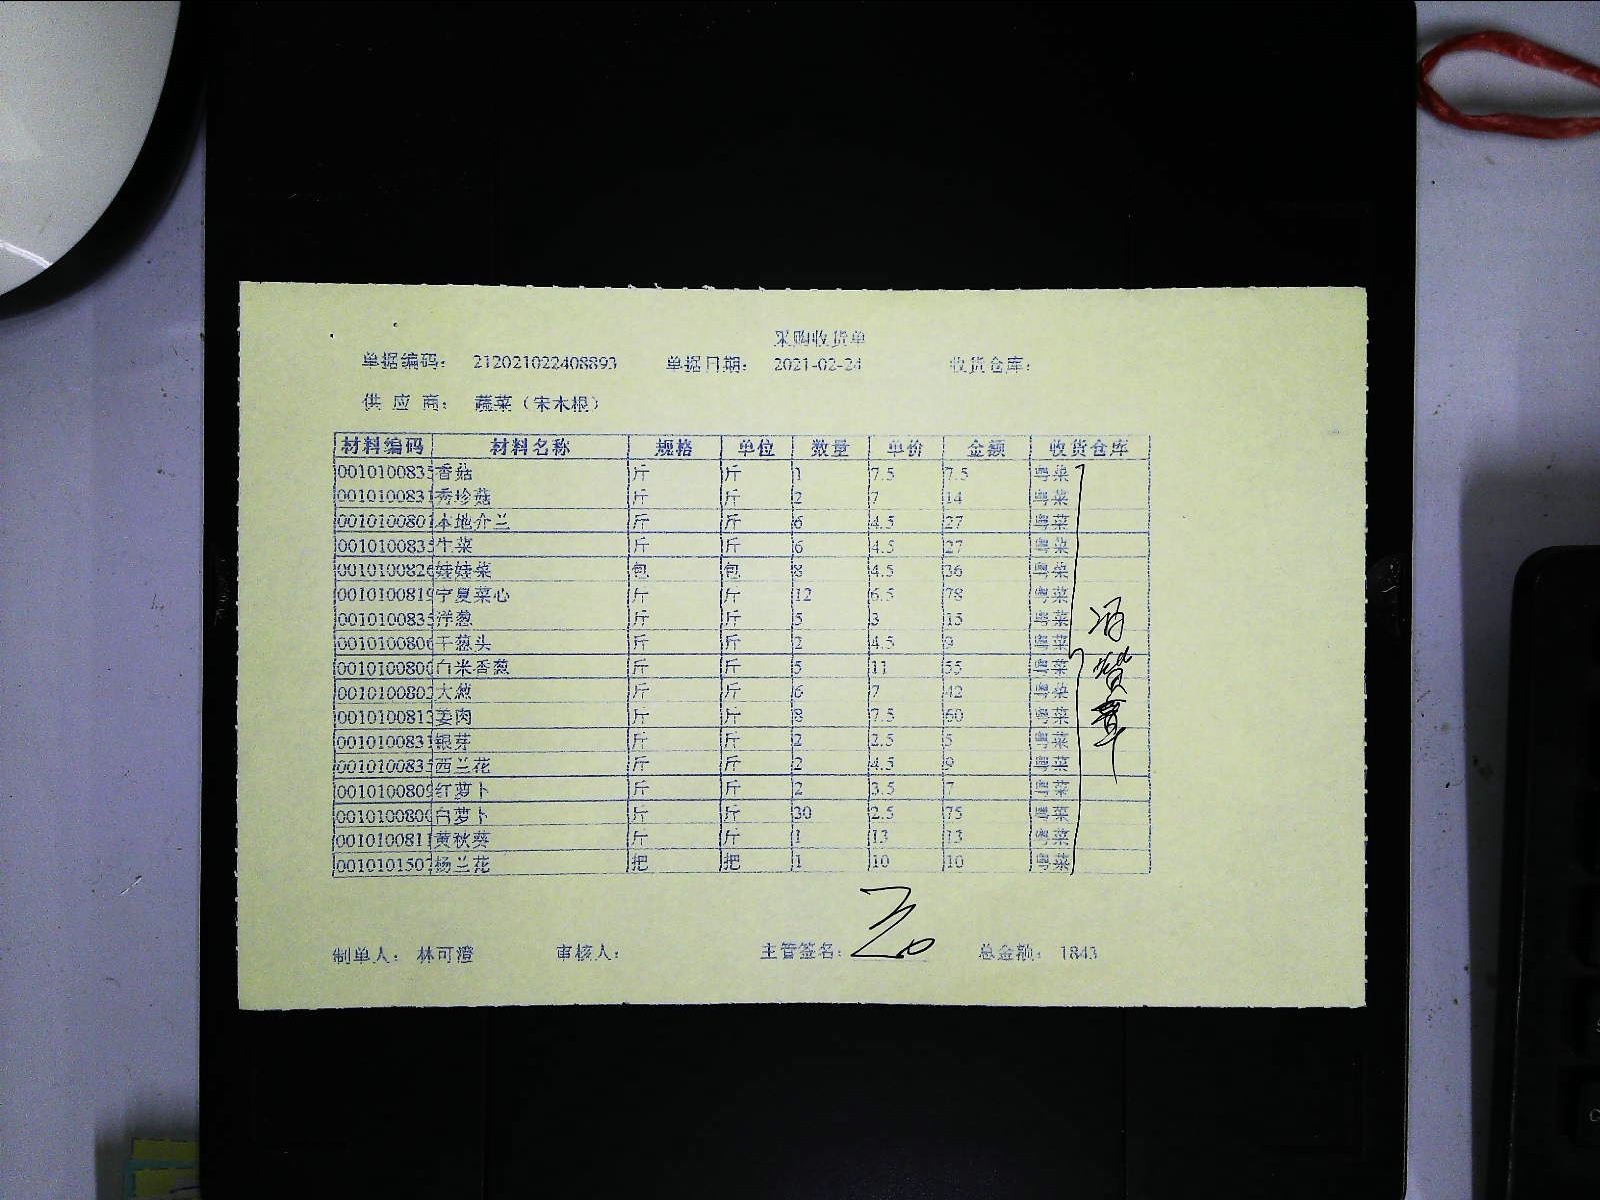 采购收货单
单据编码: 212021022408893 单据日期: 2021-02-24 收货仓库:
供 应 商: 蔬菜（宋木根）
材料编码 材料名称 规格 单位 数量 单价 金额 收货仓库
0010100835 香菇 斤 斤 1 7.5 7.5 粤菜
0010100831 秀珍菇 斤 斤 2 7 14 粤菜
0010100801 本地介兰 斤 斤 6 4.5 27 粤菜
0010100835 生菜 斤 斤 6 4.5 27 粤菜
0010100826 娃娃菜 包 包 8 4.5 36 粤菜
0010100819 宁夏菜心 斤 斤 12 6.5 78 粤菜
0010100835 洋葱 斤 斤 5 3 15 粤菜
0010100806 干葱头 斤 斤 2 4.5 9 粤菜
0010100800 白米香葱 斤 斤 5 11 55 粤菜
0010100802 大葱 斤 斤 6 7 42 粤菜
0010100813 姜肉 斤 斤 8 7.5 60 粤菜
0010100831 银芽 斤 斤 2 2.5 5 粤菜
0010100835 西兰花 斤 斤 2 4.5 9 粤菜
0010100809 红萝卜 斤 斤 2 3.5 7 粤菜
0010100800 白萝卜 斤 斤 30 2.5 75 粤菜
0010100811 黄秋葵 斤 斤 1 13 13 粤菜
0010101507 杨兰花 把 把 1 10 10 粤菜
制单人: 林可澄 审核人: 主管签名: 总金额: 1843